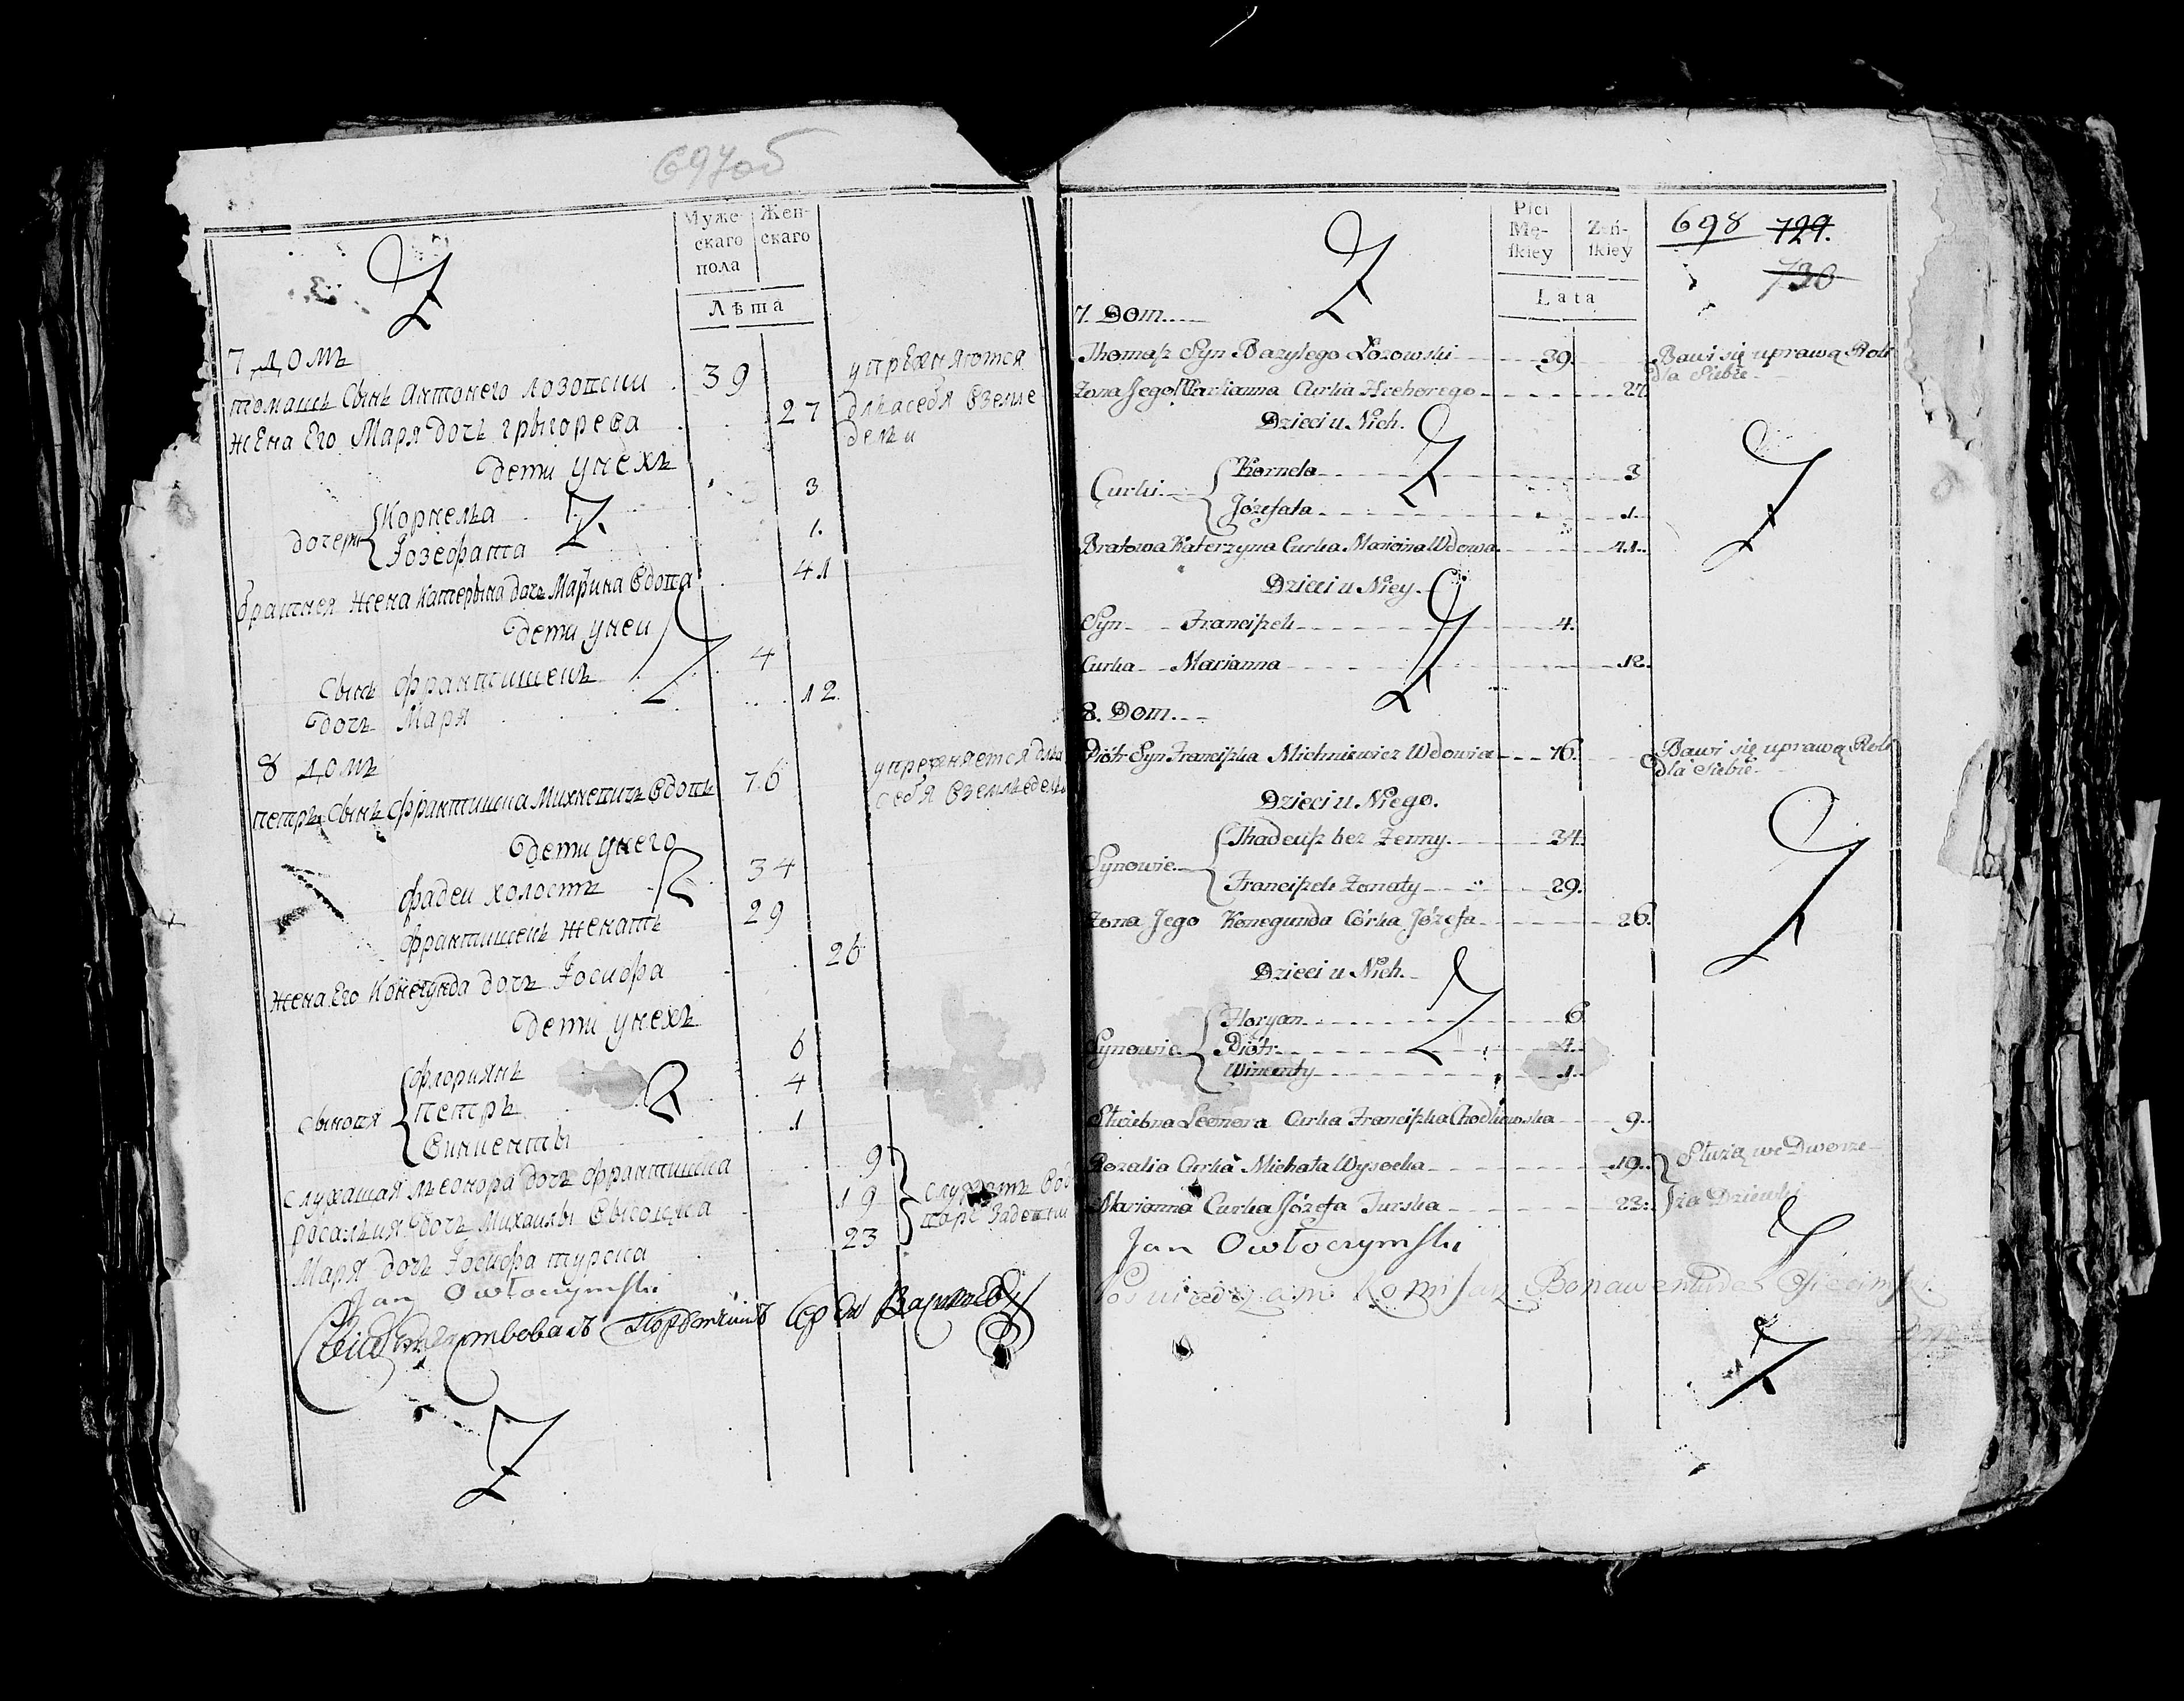 697об
Муже-
скаго
пола
Жен-
скаго
Лѣта
7 домъ
томашъ Сынъ Антонего лозовски 39
упрежняются
жена Его Маря дочь грыгорева 27
длѧ себя вземле
делы
дети унехъ
дочери
Корнеля 3
Јозефата 1.
братнея жена катерына дочь Марўна вдова 41
дети унеи
Сынъ франтишекъ 4
дочь Маря 12
8 домъ
петръ Сынъ франтишка Михневичъ вдовъ 76
упрежняется для
себя вземледелы
дети унего
фадеи холостъ 34
франтишекъ женатъ 29
жена Его Конегунда дочь Јосифа 26
дети унехъ
Сыновя
флориянъ 6
петръ 4
винценты 1
служащая леонора дочь франтишка 9
росалия дочь Михаилы высоцка 19
служатъ
Маря дочь Јосифа турска 23
Jan Owłoczymski
Płci
Mę-
ſkiey
Żeń-
ſkiey
Lata
698 729.
730
7. Dom.
Thomaſz Syn Bazylego Łozowski 39.
Bawi się uprawą Roli
dla Siebie
Żona Jego Marianna Curka Hrehorego 27
Dzieci u Nich.
Curki
Kornela 3
Józefata 1.
Bratowa Katerzyna Curka Marcina Wdowa 41.
Dzieci u Niey.
Syn Franciſzek 4.
Curka Marianna 12.
8. Dom.
Piótr Syn Franciſzka Michniewicz Wdowiec 76.
Bawi się uprawą Roli
dla Siebie
Dzieci u Niego.
Synowie
Thadeuſz bez Żenny. 34.
Franciſzek Żonaty 29.
Żona Jego Konegunda Córka Józefa 26.
Dzieci u Nich.
Synowie
Floryan 6
Piótr 4.
Wincenty 1.
Słóżebna Leonora Curka Franciſzka Chodkowska 9.
Rozalia Curka Michała Wysocka 19.
Służą we Dworze
Marianna Curka Józefa Turska 23.
za Dziewki
Jan Owłoczymski
Poświedczam Komisarz Bonawentura